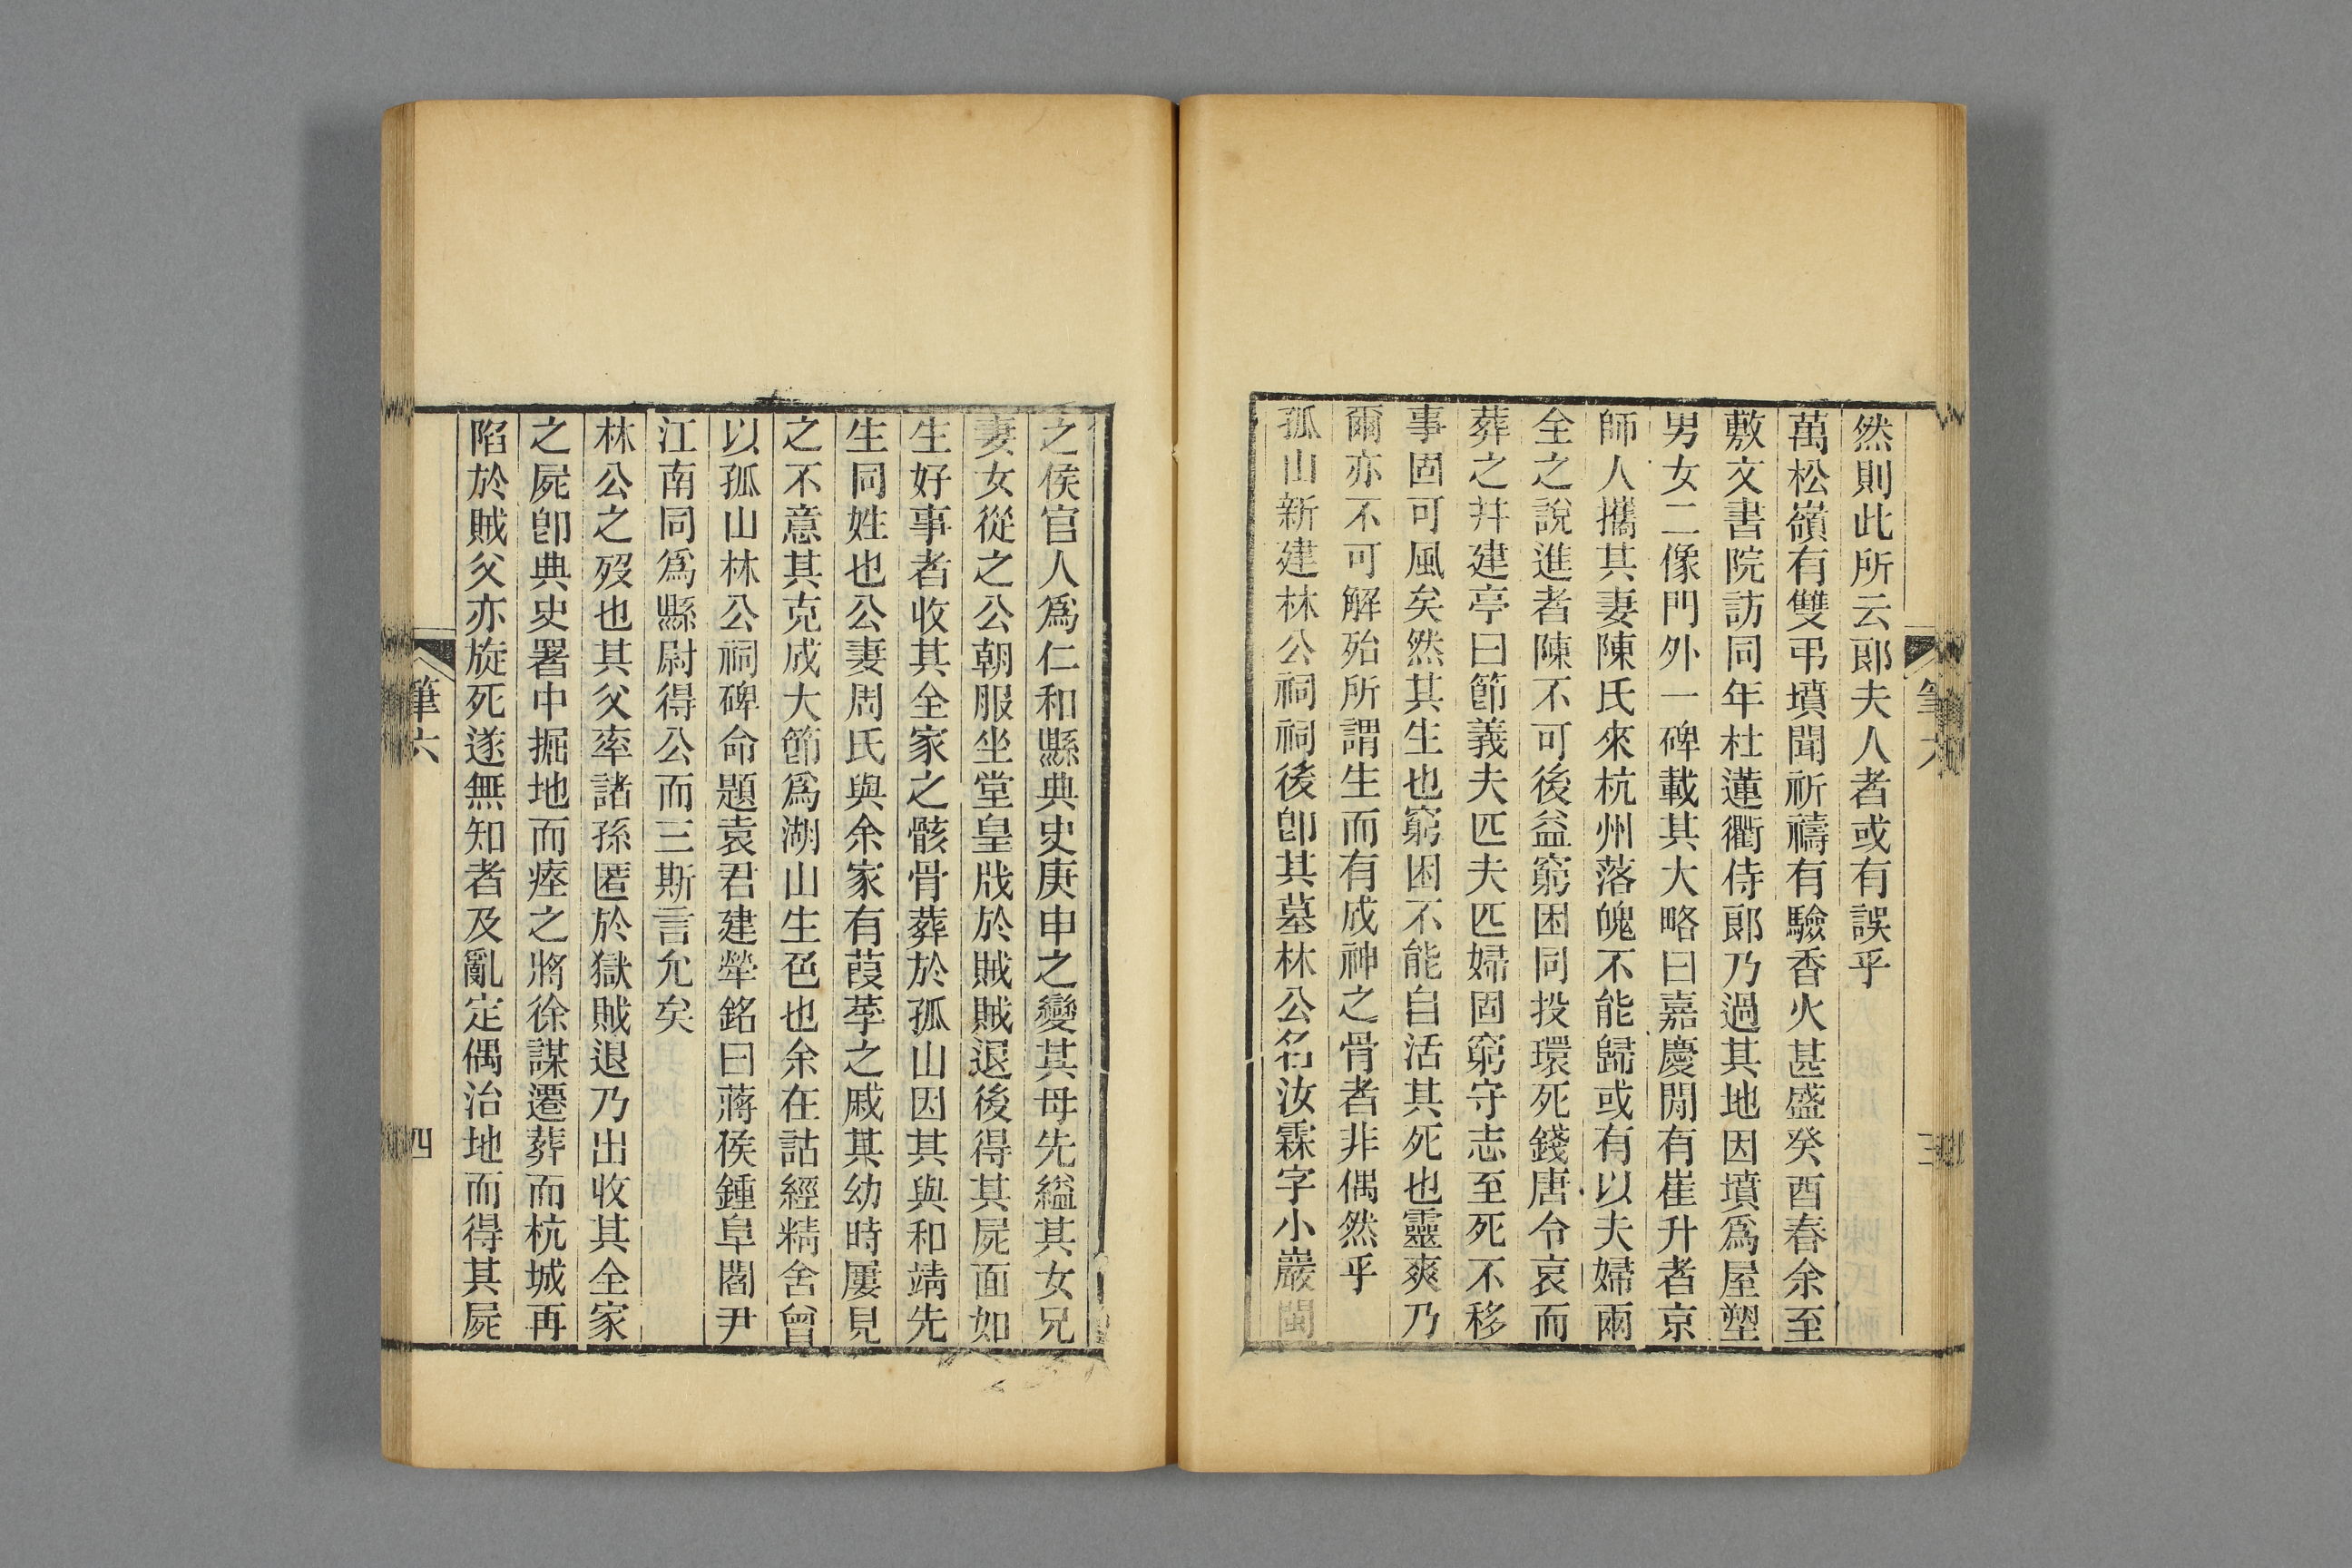 然則此所云郞夫人者或有誤乎
萬松嶺有雙弔墳聞祈禱有驗香火甚盛癸酉春余至
敷文書院訪同年杜蓮衢侍郞乃過其地因墳爲屋塑
男女二像門外一碑載其大略曰嘉慶閒有崔升者京
師人攜其妻陳氏來杭州落魄不能歸或有以夫婦兩
全之說進者陳不可後益窮困同投環死錢唐令哀而
葬之幷建亭曰節義夫匹夫匹婦固窮守志至死不移
事固可風矣然其生也窮困不能自活其死也靈爽乃
爾亦不可解殆所謂生而有成神之骨者非偶然乎
孤山新建林公祠祠後卽其墓林公名汝霖字小巖閩
之侯官人爲仁和縣典史庚申之變其母先縊其女兄
妻女從之公朝服坐堂皇戕於賊賊退後得其屍面如
生好事者收其全家之骸骨葬於孤山因其與和靖先
生同姓也公妻周氏與余家有葭莩之戚其幼時屢見
之不意其克成大節爲湖山生色也余在詁經精舍曾
以孤山林公祠碑命題袁君建犖銘曰蔣侯鍾阜閻尹
江南同爲縣尉得公而三斯言允矣
林公之歿也其父率諸孫匿於獄賊退乃出收其全家
之屍卽典史署中掘地而瘞之將徐謀遷葬而杭城再
陷於賊父亦旋死遂無知者及亂定偶治地而得其屍
筆六
四